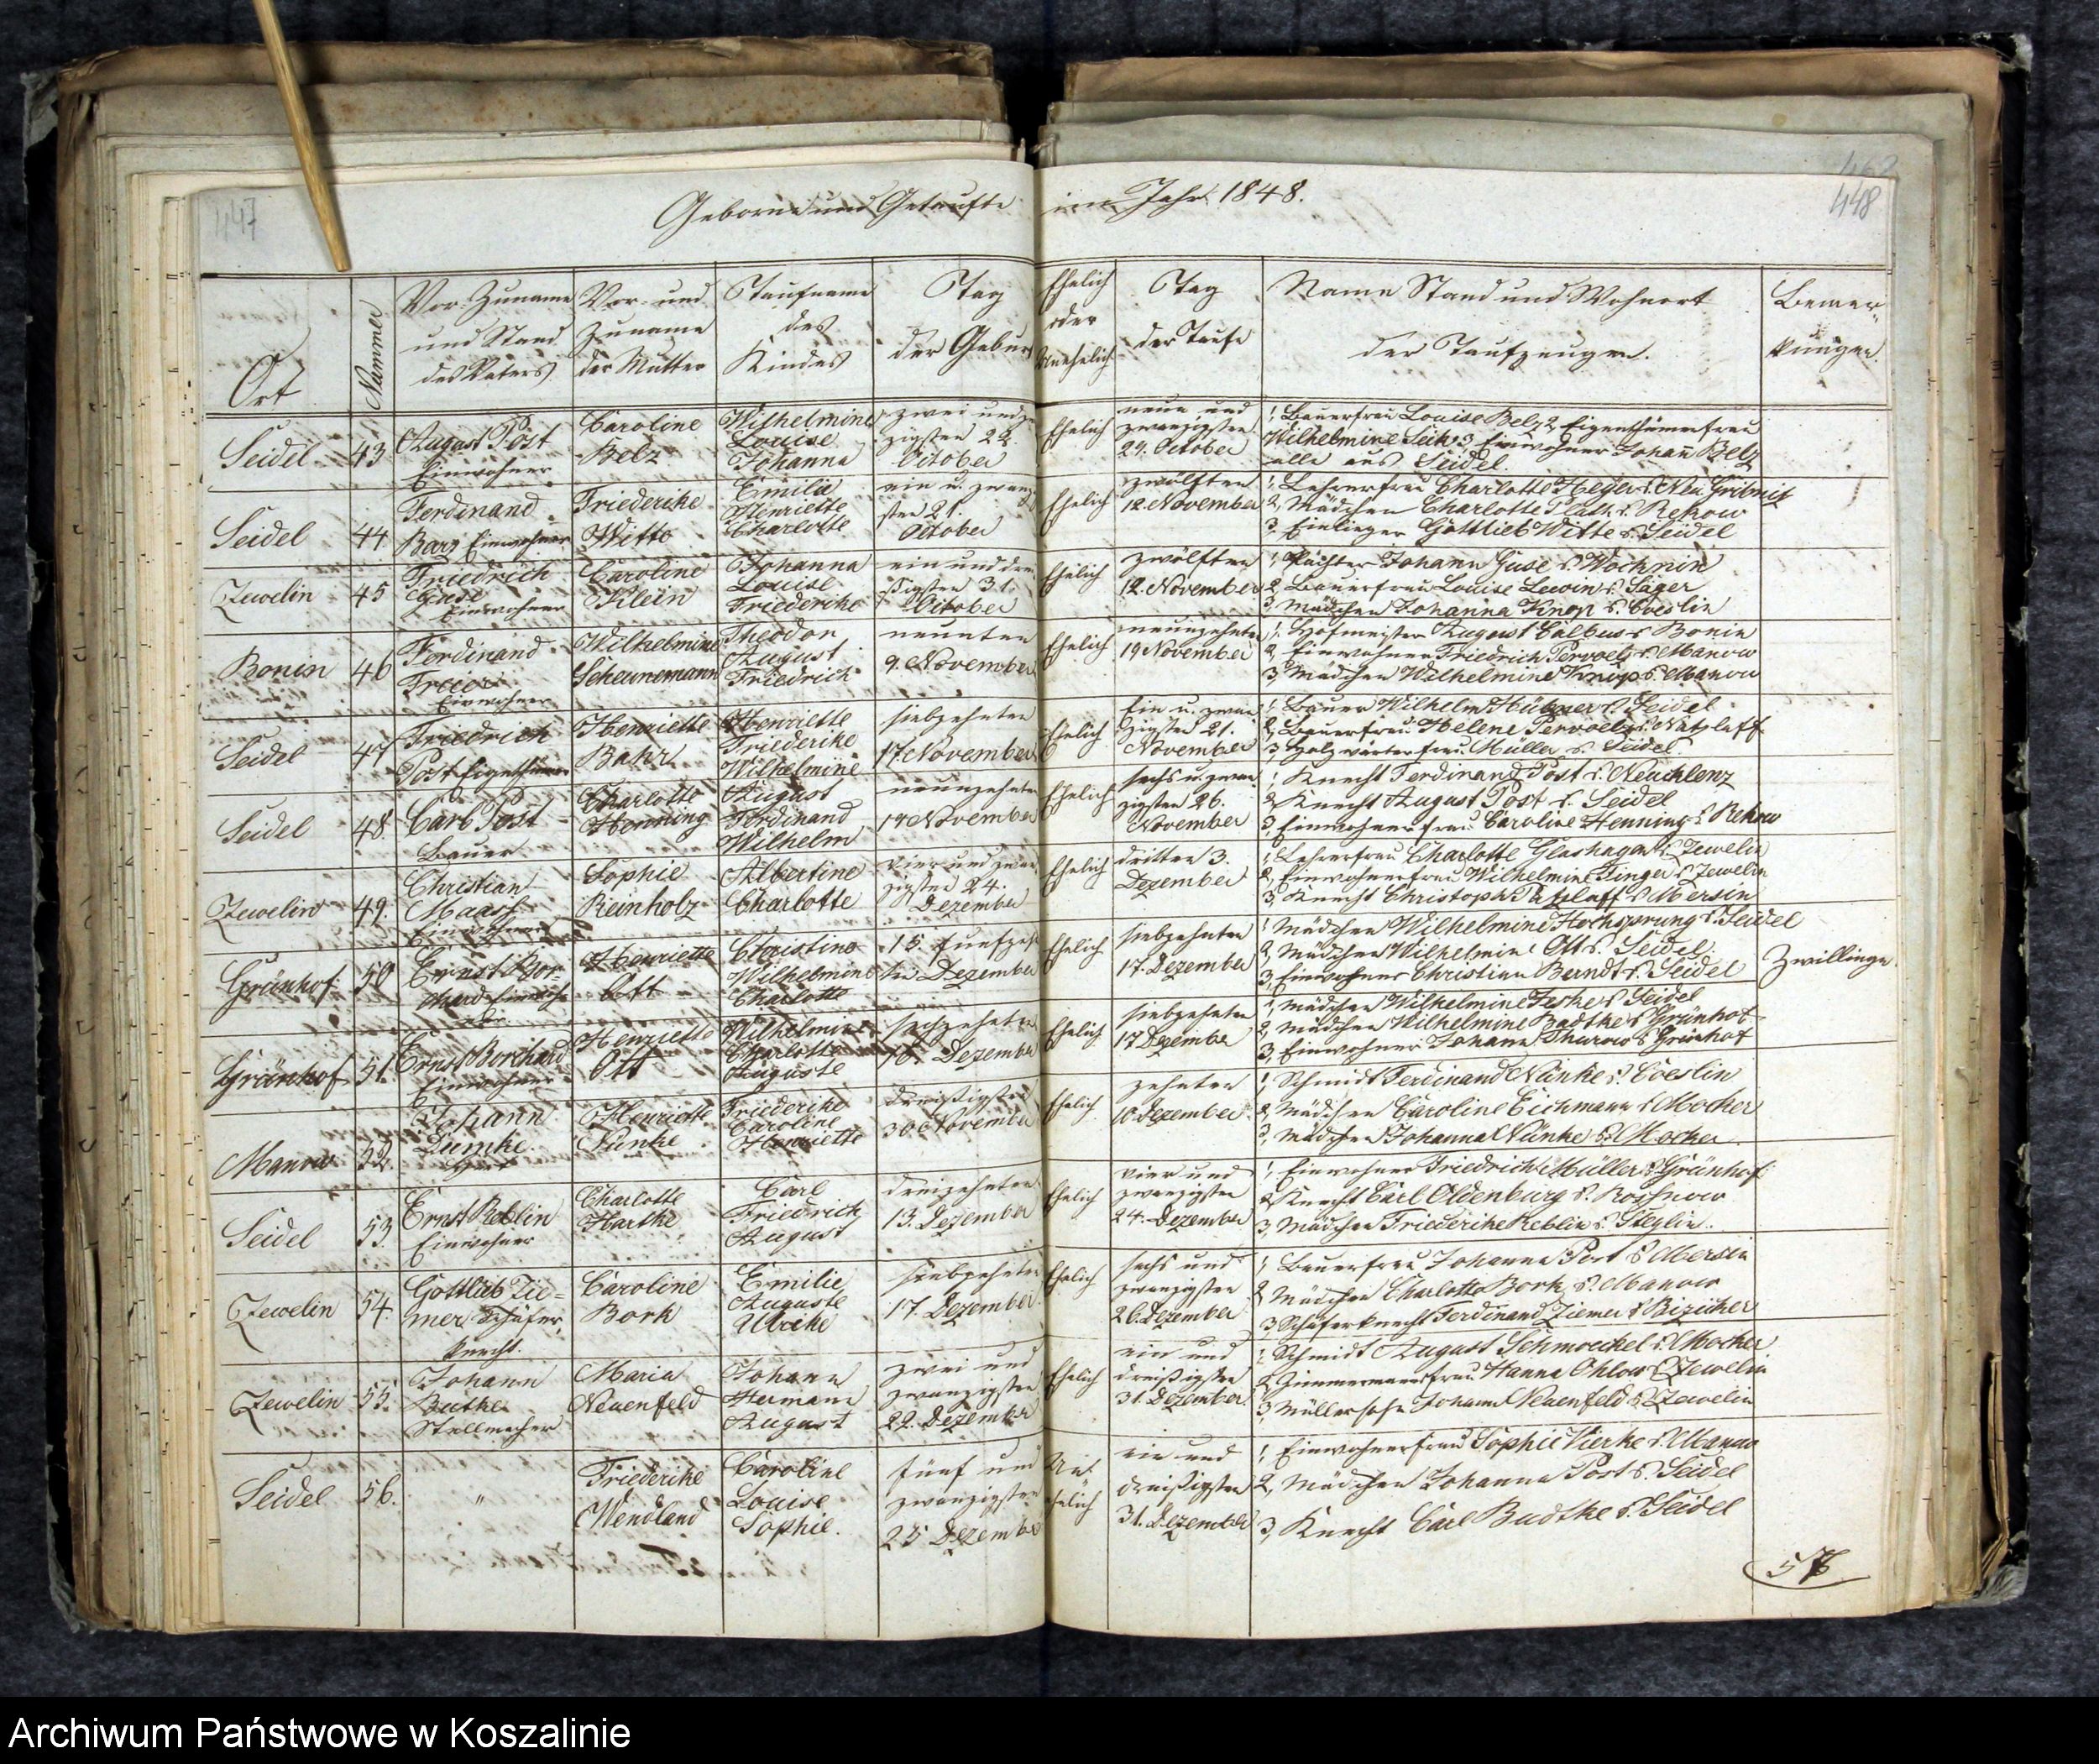 447
448
Geborne und Getaufte im Jahr 1848.
Ort
Nummer
Vor- Zuname und Stand des Vaters
Vor- und Zuname der Mutter
Taufname des Kindes
Tag der Geburt
Ehelich oder Unehelich
Tag der Taufe
Name Stand und Wohnort der Taufzeugen.
Bemerkungen.
Seidel 43 August Post Einwohner
Caroline Belz
Wilhelmine Louise Johanna
October
Ehelich
neun und zwanzigsten 29. October
1, Bauerfrau Louise Belz 2, Eigenthümerfrau
Wilhelmine 3, Einwohner Johann Belz
alle aus Seidel.
Seidel 44 Ferdinand Barz Einwohner
Friederike Witte
Emilie Henriette Charlotte
ein u. zwanzigsten 21. October
Ehelich
zwölften 12. November
1, Lehrerfrau Charlotte Heyer s. Neu Gribnitz
2, Mädchen Charlotte s. Rekow
3, Einlieger Gottlieb Witte s. Seidel
Zewelin 45 Friedrich Guse Einwohner
Caroline Klein
Johanna Louise Friederike
ein und dreißigsten 31. October
Ehelich
zwölften 12. November
1, Pächter Johann Guse s. Wochnin
2, Bauerfrau Louise Lewin s. Jäger
3, Mädchen Johanna Knop s. Coeslin
Bonin 46 Ferdinand Freier Einwohner
Wilhelmine Scheunemann
Theodor August Friedrich
neunten 9. November
Ehelich
neunzehnten 19 November
1, Hofmeister August s. Bonin
2, Einwohner Friedrich Pervoelz s. Manow
3, Mädchen Wilhelmine Knop s. Manow
Seidel 47 Friedrich Post Eigenthümer
Henriette Bahr
Henriette Friederike Wilhelmine
siebzehnten 17. November
Ehelich
Ein u. zwanzigsten 21. November
1, Bauer Wilhelm Hübner s. Seidel
2, Bauerfrau Helene Pervoelz s. Natzlaff
3, Holzwärterfrau Müller s. Seidel
Seidel 48. Carl Post Bauer
Charlotte Henning
August Ferdinand Wilhelm
neunzehnten 19 November
Ehelich
sechs u. zwanzigsten 26. November
1, Knecht Ferdinand Post s. Neuklenz
2, Knecht August Post s. Seidel
3, Einwohnerfrau Caroline Henning s. Rekow
Zewelin 49. Christian Maass Einwohner
Sophie Reinholz
Albertine Charlotte
vier und zwanzigsten 24.
Ehelich
dritten 3. Dezember
1, Lehrerfrau Charlotte Glashagen s. Zewelin
2, Einwohnerfrau Wilhelmine Finger s. Zewelin
3, Knecht Christoph s. Mersin
Grünhof 50 Ernst Borchard Einwohner
Henriette Ott
Christine Wilhelmine Charlotte
15. funfzehnten Dezember
Ehelich
siebzehnten 17. Dezember
1, Mädchen Wilhelmine Hochsprung s. Seidel
2, Mädchen Wilhelmine Ott s. Seidel
3, Einwohner Christian Berndt s. Seidel
Zwillinge.
Grünhof 51. Ernst Borchard Einwohner
Henriette Ott
Wilhelmine Charlotte Auguste
sechzehnten 16. Dezember
Ehelich
siebzehnten 17 Dezember
1, Mädchen Wilhelmine Jeske s. Seidel
2, Mädchen Wilhelmine Radtke s. Grünhof
3, Einwohner Johann Thurow s. Grünhof
Manow 52. Johann Dumke
Henriette Nünke
Friederike Caroline Henriette
dreißigsten 30 November
Ehelich
zehnten 10 Dezember
1, Schmidt Ferdinand Nünke s. Coeslin
2, Mädchen Caroline Eichmann s. Mocker
3, Mädchen Johanna Nünke s. Mocker
Seidel 53. Ernst Reblin Einwohner
Charlotte Harthe
Carl Friedrich August
dreizehnten 13. Dezember
Ehelich
vier und zwanzigsten 24. Dezember
1, Einwohner Friedrich Müller s. Grünhof
2, Knecht Carl Oldenburg s. Rossnow
3, Mädchen Friederike Reblin s. Steglin.
Zewelin 54. Gottlieb Ziemer Schäferknecht.
Caroline Bork
Emilie Auguste Ulrike
siebzehnten 17. Dezember
Ehelich
sechs und zwanzigsten 26. Dezember
1, Bauerfrau Johanna Port s. Mersin
2, Mädchen Charlotte Bork s. Manow
3, Schäferknecht Ferdinand Ziemer s. Biziker
Zewelin 55. Johann Buthke Stellmacher
Maria Neuenfeld
Johann Hermann August
zwei und zwanzigsten 22. Dezember
Ehelich
ein und dreißigsten 31. Dezember
1, Schmidt August Schmoeckel s. Mocker
2, Zimmermannsfrau Hanna Ohlow s. Zewelin
3, Müllersohn Johann Neuenfeld s. Zewelin
Seidel 56. "
Friederike Wendland
Caroline Louise Sophie.
fünf und zwanzigsten 25 Dezember
Unehelich
ein und dreißigsten 31. Dezember
1, Einwohnerfrau Sophie Vierke s. Manow
2, Mädchen Johanna Post s. Seidel
3, Knecht Carl Budtke s. Seidel
Archiwum Państwowe w Koszalinie